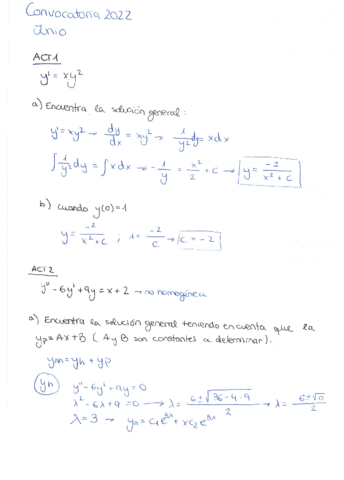 Convocatoria 2022
Junio
ACT1
y' = xy²
a) Encuentra la solución general:
y' = xy² → dy/dx = xy² → 1/y² dy = x dx
∫ 1/y² dy = ∫ x dx → -1/y = x²/2 + C → y = -2/(x² + C)
b) cuando y(0)=1
y = -2/(x² + C) ; 1 = -2/C → C = -2
ACT2
y'' - 6y' + 9y = x + 2 → no homogénea
a) Encuentra la solución general teniendo en cuenta que la
yp = Ax + B ( A y B son constantes a determinar).
ynn = yh + yp
yh y'' - 6y' + 9y = 0
λ² - 6λ + 9 = 0 → λ = (6 ± √(36 - 4·9))/2 → λ = (6 ± √0)/2
λ = 3 → yh = C₁e³ˣ + xC₂e³ˣ